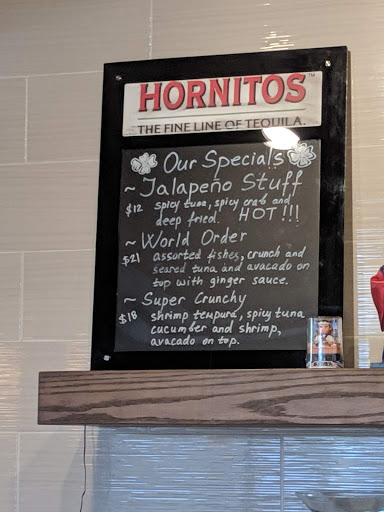 HORNITOS™
THE FINE LINE OF TEQUILA.
Our Specials
~ Jalapeño Stuff
$12 spicy tuna, spicy crab and
deep fried. HOT!!!
~ World Order
$21 assorted fishes, crunch and
seared tuna and avacado on
top with ginger sauce.
~ Super Crunchy
$18 shrimp tenpura, spicy tuna
cucumber and shrimp,
avacado on top.